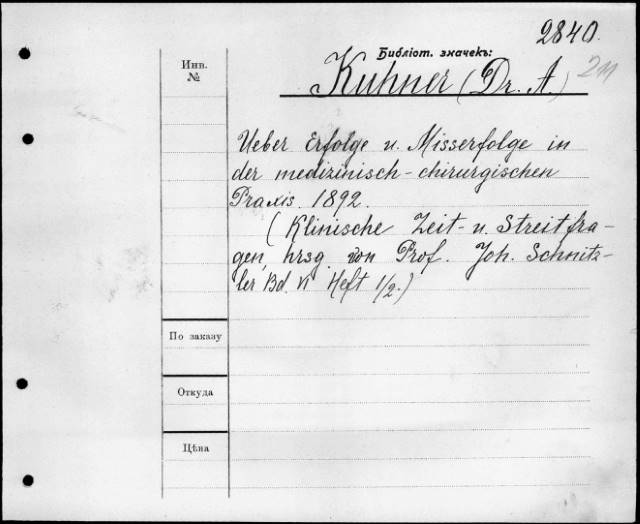 2840.
Библіот. значекъ:
Инв.
№
Kuhner (Dr. A.)
Ueber Erfolge u. Misserfolge in
der medizinisch-chirurgischen
Praxis. 1892.
(Klinische Zeit- u. Streitfra-
gen, hrsg. von Prof. Joh. Schnitz-
ler, Bd. VI Heft 1/2.)
По заказу
Откуда
Цѣна